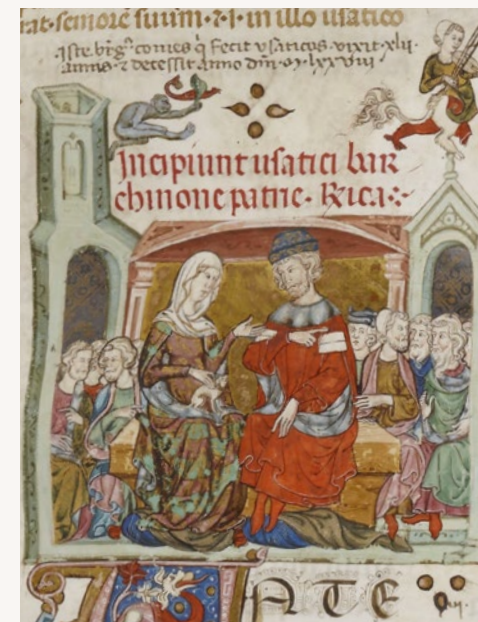 fat. seniorē suum. ⁊ I. in illo usatico
iste. b̄rg᷒ comes q̇ fecit vsaticos. vixit. xlii.
annis. ⁊ decessit Anno dn̄i. M. lxxviii
Incipiunt usatici bar
chinone patrie. Rrica
ANTE